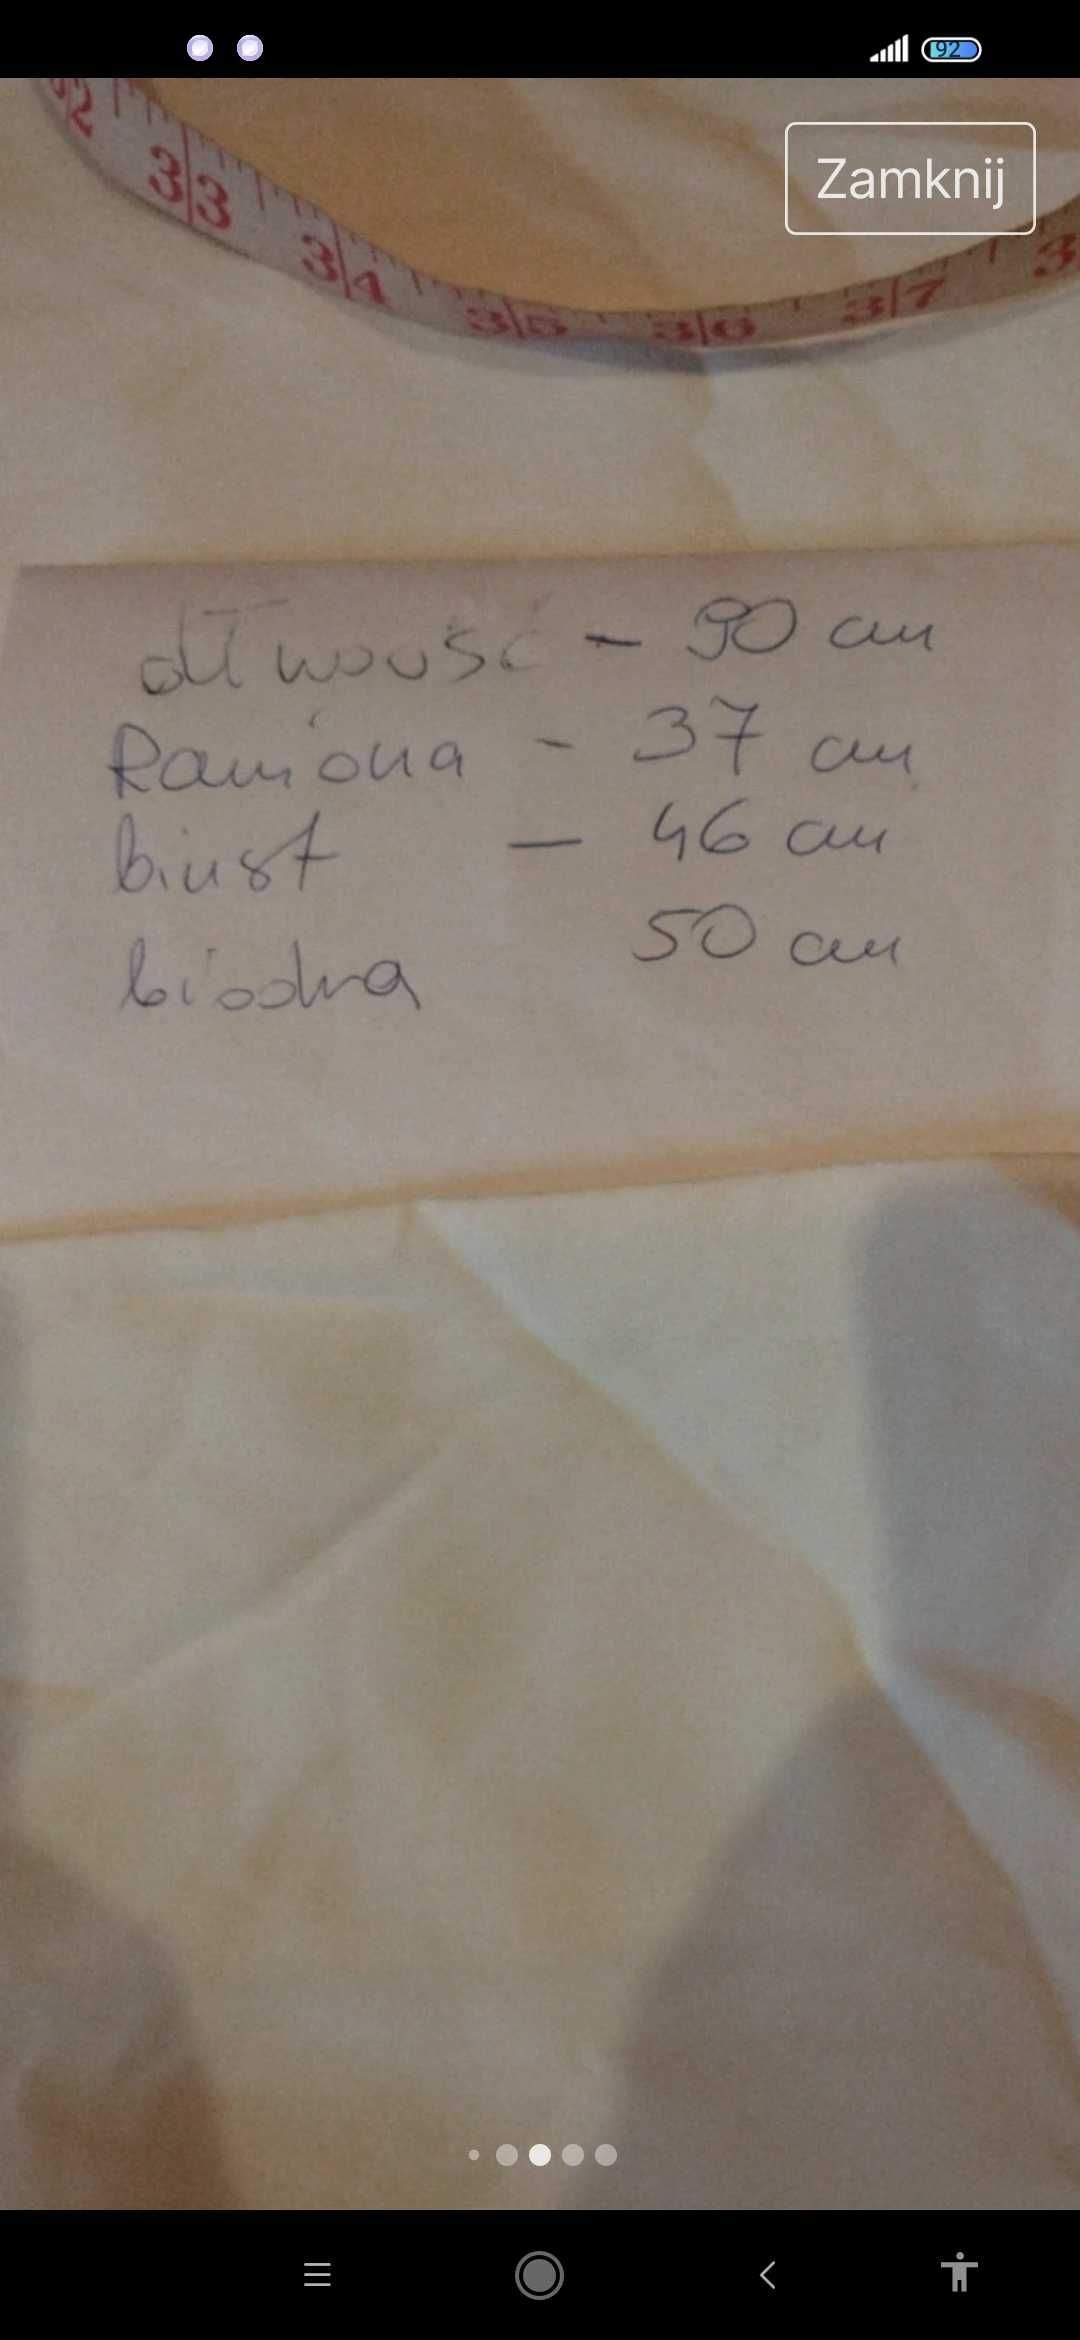 92
Zamknij
32
33
34
35
36
37
3
dłwość - 90 cm
Ramiona - 37 cm
biust — 46 cm
biodra 50 cm